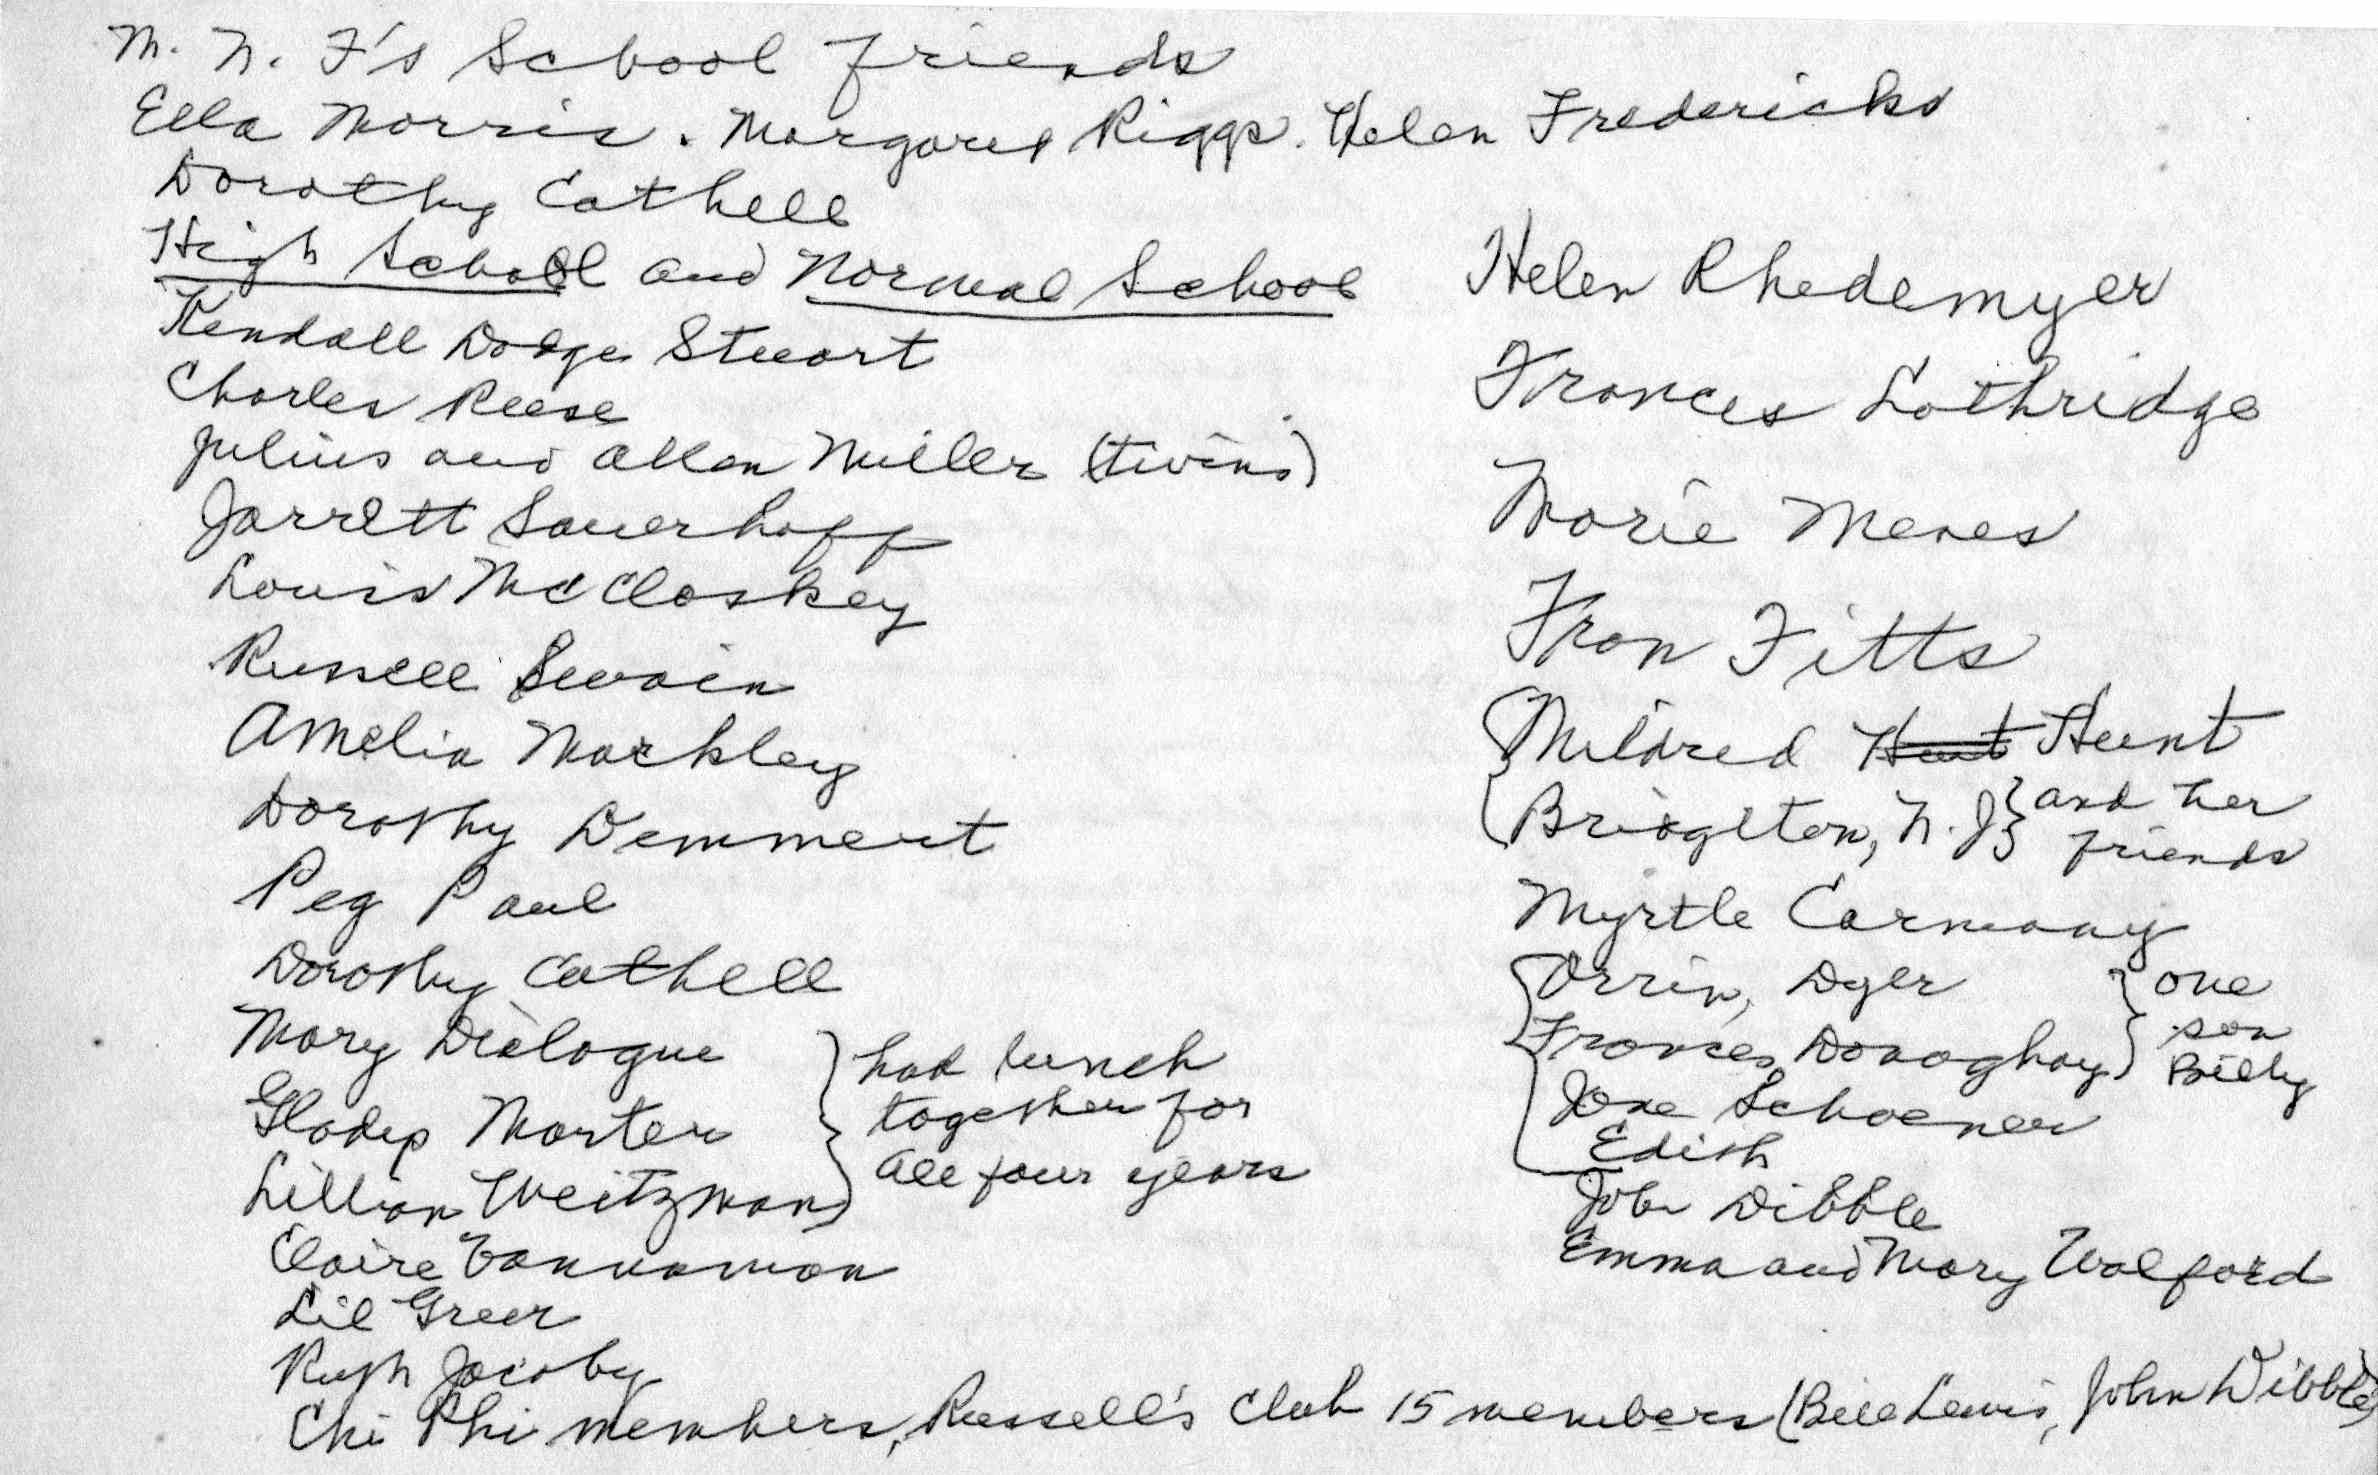 M. N. F's School friends
Ella Morris. Margaret Riggs. Helen Fredericks
Dorothy Cathell
High School and Normal School
Kendall Dodge Stewart
Charles Reese
Julius and Allen Miller (twins)
Jarrett Sauerhoff
Louis McCloskey
Russell Swain
Amelia Markley
Dorothy Demmert
Peg Paul
Dorothy Cathell
Mary Dialogue
Gladys Morter
Lillian Weitzman
had lunch
together for
all four years
Claire Vannaman
Lil Greer
Ruth Jacoby
Helen Rhedemyer
Frances Lothridge
Marie Meves
Fran Fitts
Mildred Hunt Hunt
Bridgeton, N.J. and her
friends
Myrtle Carmany
Orrin, Dyer
Frances, Donaghay
one
son
Billy
Jane Schoener
Edith
John Dibble
Emma and Mary Walford
Chi Phi members, Russell's Club 15 members (Bill Lewis, John Dibble)